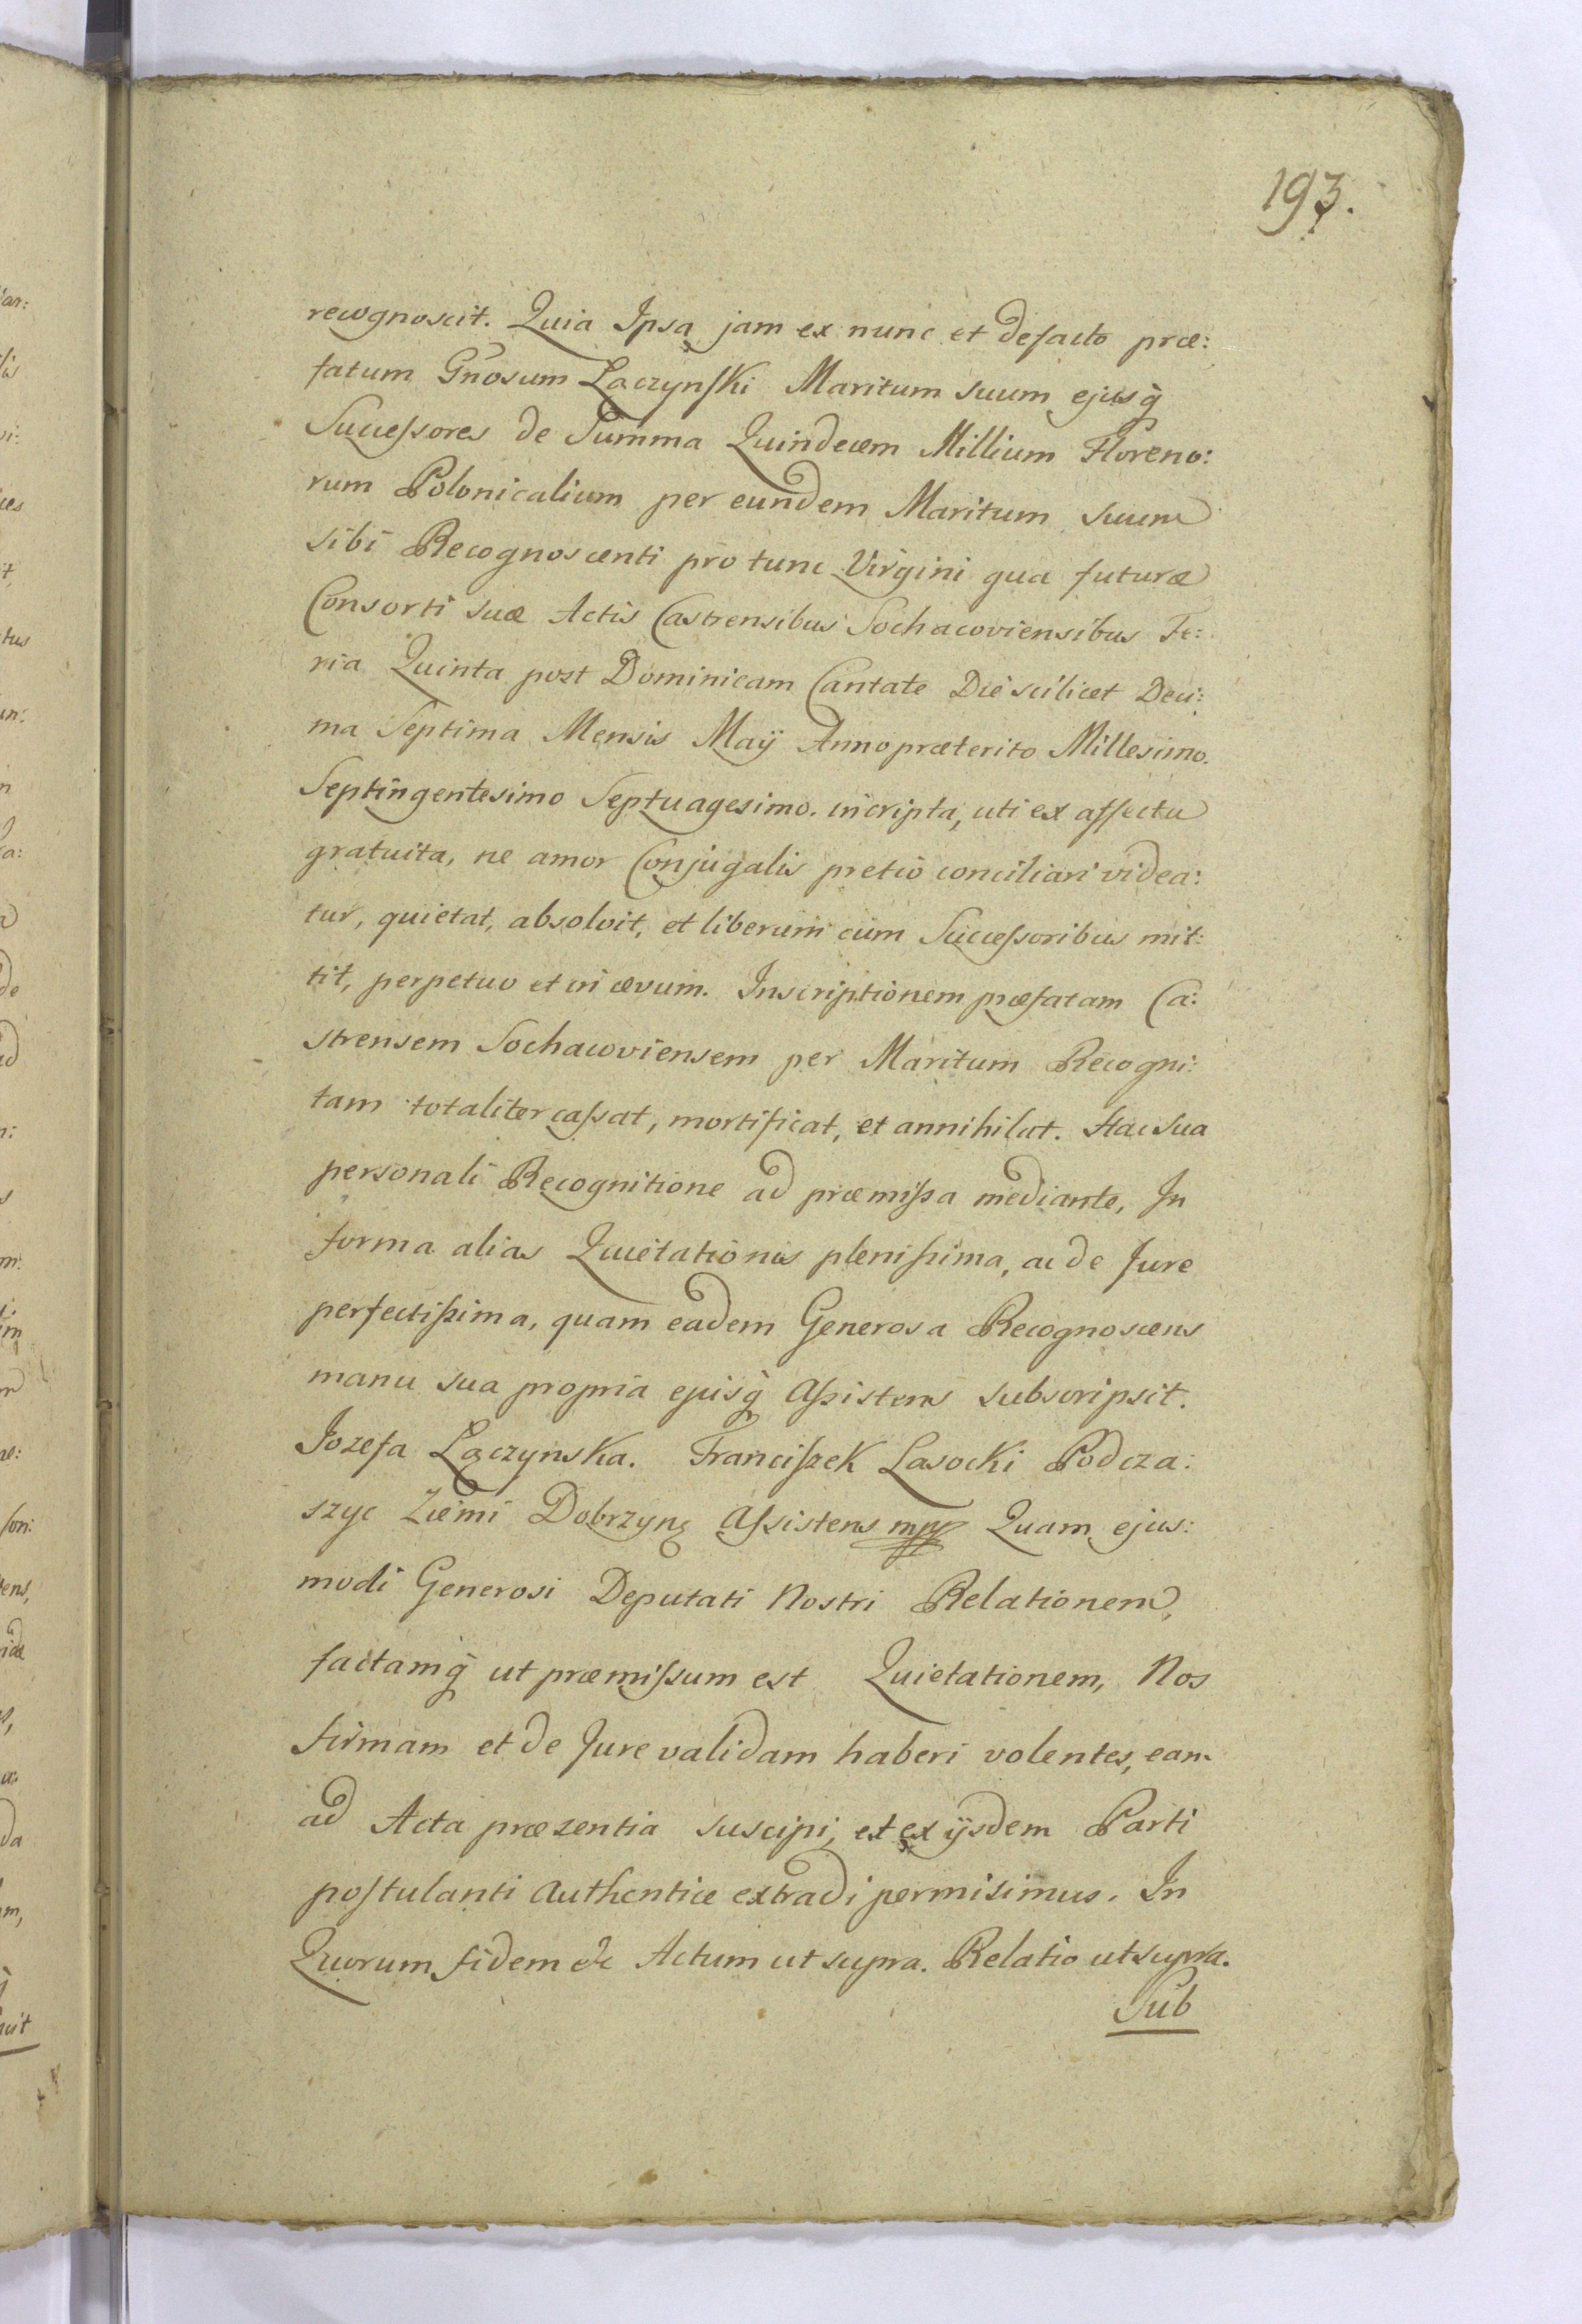 193.
recognoscit. Quia Ipsa jam ex nunc et defacto præ:
fatum Gnosum Łączynſki Maritum suum ejusq̃
Succeſsores de Summa Quindecem Millium Floreno:
rum Polonicalium per eundem Maritum suum
sibi Recognoscenti pro tunc Virgini qua futuræ
Consorti suæ Actis Castrensibus Sochacoviensibus Fe:
ria Quinta post Dominicam Cantate Die scilicet Deci:
ma Septima Mensis Maÿ Anno præterito Millesimo.
Septingentesimo Septuagesimo. incripta, uti ex affectu
gratuita, ne amor Conjugalis pretio conciliari videa:
tur, quietat, absolvit, et liberum cum Succeſsoribus mit:
tit, perpetuo et in ævum. Inscriptionem præfatam Ca:
strensem Sochacoviensem per Maritum Recogni:
tam totaliter caſsat, mortificat, et annihilat. Hac sua
personali Recognitione ad præmiſsa mediante, In
forma alias Quietationis pleniſsima, ac de Jure
perfectiſsima, quam eadem Generosa Recognoscens
manu sua propria ejusq̃ Aſsistens subscripsit.
Jozefa Łączynska. Franciſzek Lasocki Podcza:
szyc Ziemi Dobrzyn: Aſsistens mp Quam ejus:
modi Generosi Deputati Nostri Relationem,
factamq̃ ut præmiſsum est Quietationem, Nos
firmam et de Jure validam haberi volentes, eam
ad Acta præsentia suscipi, et ex ijsdem Parti
poſtulanti Authentice extradi permisimus. In
Quorum fidem &c Actum ut supra. Relatio ut supra.
Sub